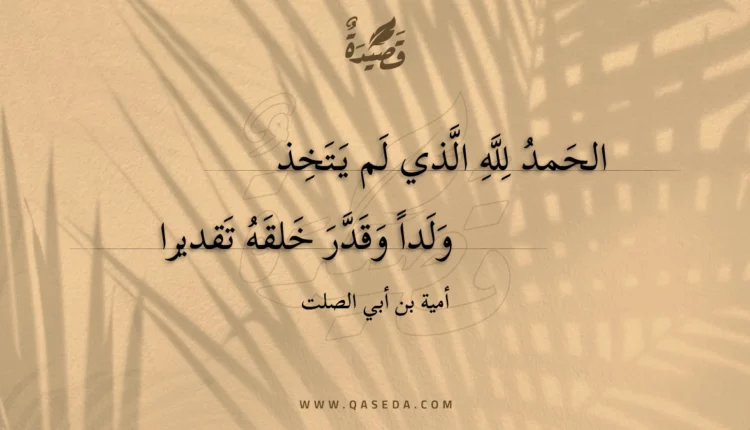 قَصِيْدَةٌ
الحَمدُ لِلَّهِ الَّذي لَم يَتَخِذ
وَلَداً وَقَدَّرَ خَلقَهُ تَقديرا
أمية بن أبي الصلت
WWW.QASEDA.COM